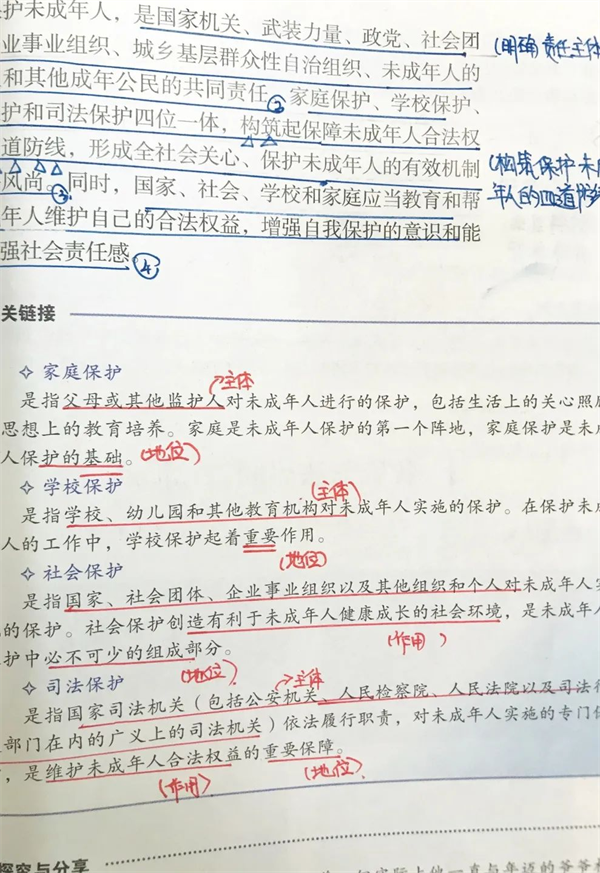 护未成年人，是国家机关、武装力量、政党、社会团
业事业组织、城乡基层群众性自治组织、未成年人的
(明确责任主体
和其他成年公民的共同责任。②家庭保护、学校保护、
护和司法保护四位一体，构筑起保障未成年人合法权
道防线，形成全社会关心、保护未成年人的有效机制
(构筑保护未成
风尚。③同时，国家、社会、学校和家庭应当教育和帮
年人的四道防线
年人维护自己的合法权益，增强自我保护的意识和能
强社会责任感。④
关链接
家庭保护
主体
是指父母或其他监护人对未成年人进行的保护，包括生活上的关心照顾
思想上的教育培养。家庭是未成年人保护的第一个阵地，家庭保护是未成
人保护的基础。(地位)
学校保护
(主体)
是指学校、幼儿园和其他教育机构对未成年人实施的保护。在保护未成
人的工作中，学校保护起着重要作用。
(地位)
社会保护
是指国家、社会团体、企业事业组织以及其他组织和个人对未成年人实
的保护。社会保护创造有利于未成年人健康成长的社会环境，是未成年人
(作用)
护中必不可少的组成部分。
(地位)
司法保护
主体
是指国家司法机关（包括公安机关、人民检察院、人民法院以及司法行
部门在内的广义上的司法机关）依法履行职责，对未成年人实施的专门保
，是维护未成年人合法权益的重要保障。
(作用)
(地位)
探究与分享